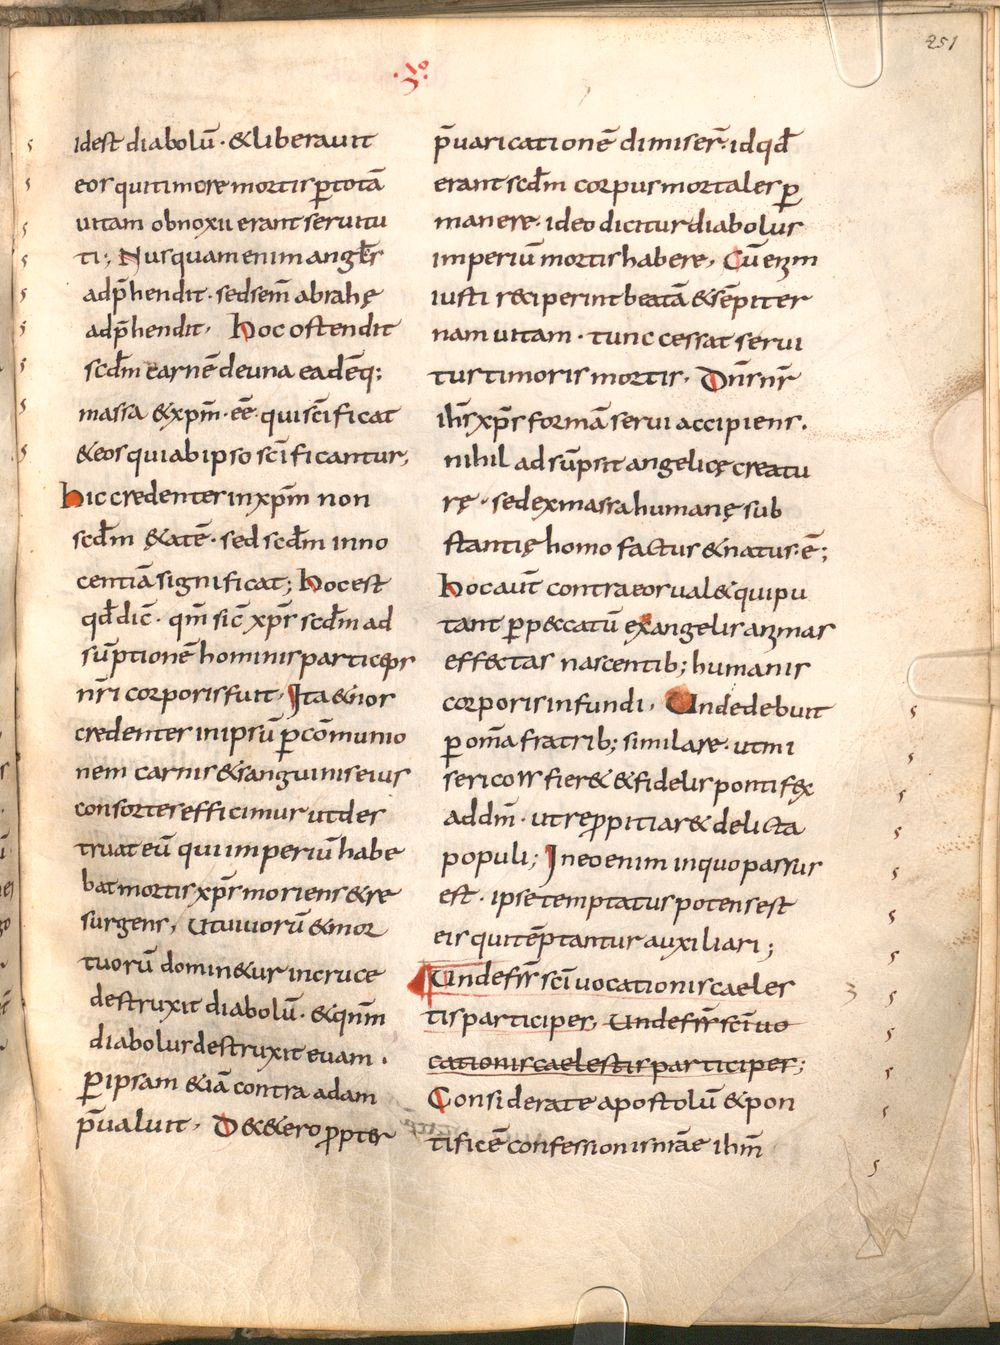 251
idest diabolū · &liberauit
eos qui timore mortis ꝑtotā
uitam obnoxii erant seruitu
ti; Nusquam enim angl̄s
adp̄hendit · sed sem̄ abrahę
adp̄hendit, hoc ostendit
scd̄m carnē de una eadēq;
massa & xp̄m · eē · qui sc̄ificat
& eos qui ab ipso sc̄ificantur,
hic credentes in xp̄m non
scd̄m ętatē · sed scd̄m inno
centiā significat; hoc est
qd̄ dic̄ · qm̄ sic̄ xp̄s scd̄m ad
sūptionē hominis particeps
nr̄i corporis fuit · Ita & nos
credentes in ipsū ꝑ cōmunio
nem carnis & sanguinis eius
consortes efficimur ut des
truat eū qui imperiū habe
bat mortis xp̄s moriens & re
surgens, Ut uiuorū & mor
tuorū domin&ur in cruce
destruxit diabolū · & qn̄m
diabolus destruxit euam ·
ꝑ ipsam &iā contra adam
p̄ualuit, D& & ero ꝓpter
p̄uaricationē dimiser̄ · id qd̄
erant scd̄m corpus mortales ꝑ
manere · ideo dicitur diabolus
imperiū mortis habere, Cū enim
iusti r&iperint beatā & sēpiter
nam uitam · tunc cessat serui
tus timoris mortis, Dn̄s nr̄
ih̄s xp̄s formā serui accipiens ·
nihil adsūpsit angelicę creatu
rę · sed ex massa humanę sub
stantię homo factus & natus · ē;
hoc aut̄ contra eos ual& qui pu
tant ꝑ p&catū ex angelis animas
effectas nascentib; humanis
corporis infundi, Unde debuit
ꝑ om̄a fratrib; similare · ut mi
sericors fier& & fidelis pontifex
ad dm̄ · ut repropitiar& delicta
populi; In eo enim in quo passus
est · ipse temptatus potens est
eis qui tēptantur auxiliari;
Unde fr̄s sc̄i uocationis caeles
tis participes, Unde fr̄s sc̄i uo
cationis caelestis participes;
Considerate apostolū & pon
tificē confessionis nr̄ae ihm̄